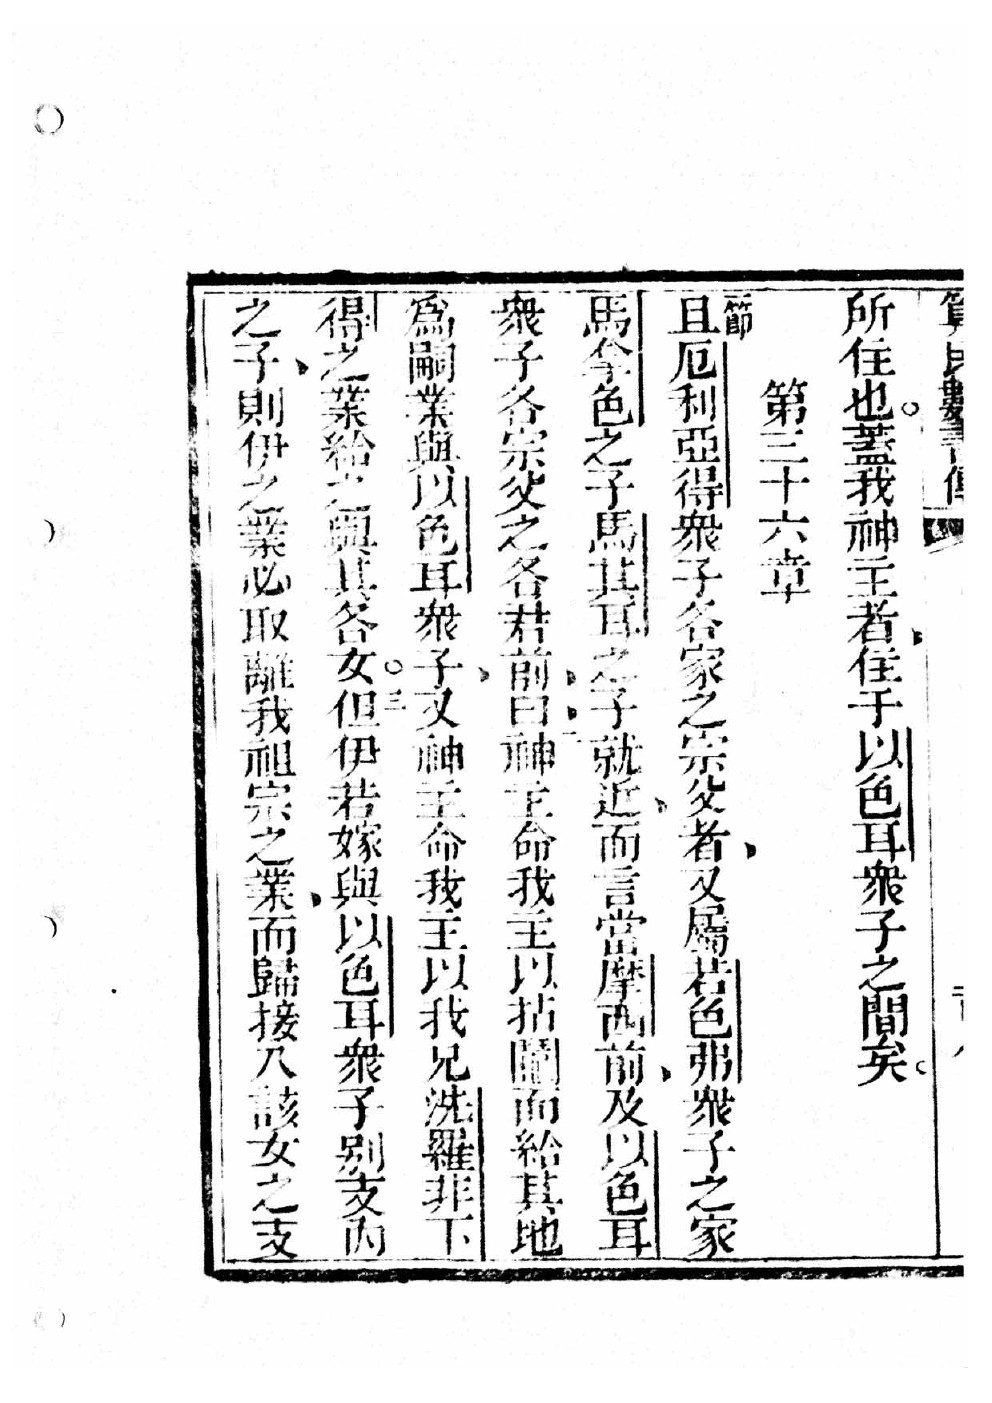 算民數書傳
所住也。蓋我神主者、住于以色耳衆子之間矣。
第三十六章
一節且厄利亞得衆子各家之宗父者、又屬若色弗衆子之家
馬拿色之子馬其耳之子就近、而言當摩西前、及以色耳
衆子各宗父之各君前、曰、二神主命我主以拈鬮而給其地
爲嗣業與以色耳衆子、又神主命我主以我兄洗羅非下
得之業給之與其各女。三但伊若嫁與以色耳衆子別支內
之子、則伊之業必取離我祖宗之業、而歸接入該女之支